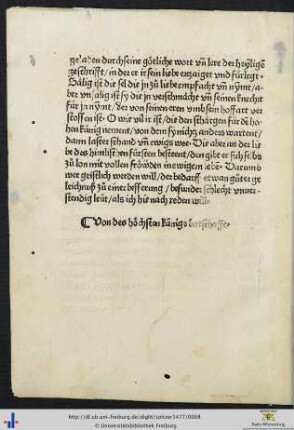 geladen durch seine götliche wort vñ lere der heyligẽ
geschrifft / in der er ir sein liebe erzaiget vnd fürlegt.
Sälig ist die sel die jn zů liebe empfacht vñ nymt / a-
ber vnsälig ist sy die jn verschmächt vñ seinen knecht
für jn nymt / der von seinen eren vmb sein hoffart ver
stossen ist. O wie vil ir ist / die den schärgen für dẽ ho-
hen künig nement / von dem sy nichtz anders wartent /
dann laster schand vñ ewigs wee. Die aber an der lie
be des himlischen fürsten besteent / den gibt er sich selbs
zů lon mit vollen fröwden in ewigem lebẽ. Darumb
wer geistlich werden will / der bedarff etwan gůter ge
leichnuß zů einer besserung / besunder schlecht vnuer-
stendig leut / als ich hie nach reden will.
¶ Von des höchsten künigs botschafft.
http://dl.ub.uni-freiburg.de/diglit/spitzer1477/0008
© Universitätsbibliothek Freiburg
Baden-Württemberg